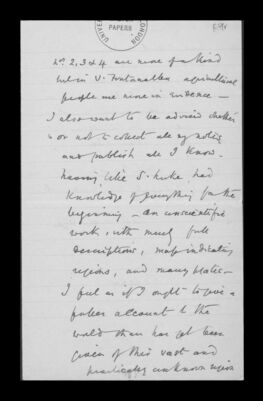 UNIVERSITY
PAPERS
LONDON
Nos 2, 3 & 4 are more of a kind
while in V. agricultural
people are more in evidence —
I also want to be advised whether
or not to collect all my notes
and publish all I know —
having, like S. had
knowledge of everything from the
beginning — an unscientific
work, with many full
descriptions, maps indicating
regions, and many plates —
I feel as if I ought to give a
fuller account to the
world than has yet been
given of this vast and
practically unknown region